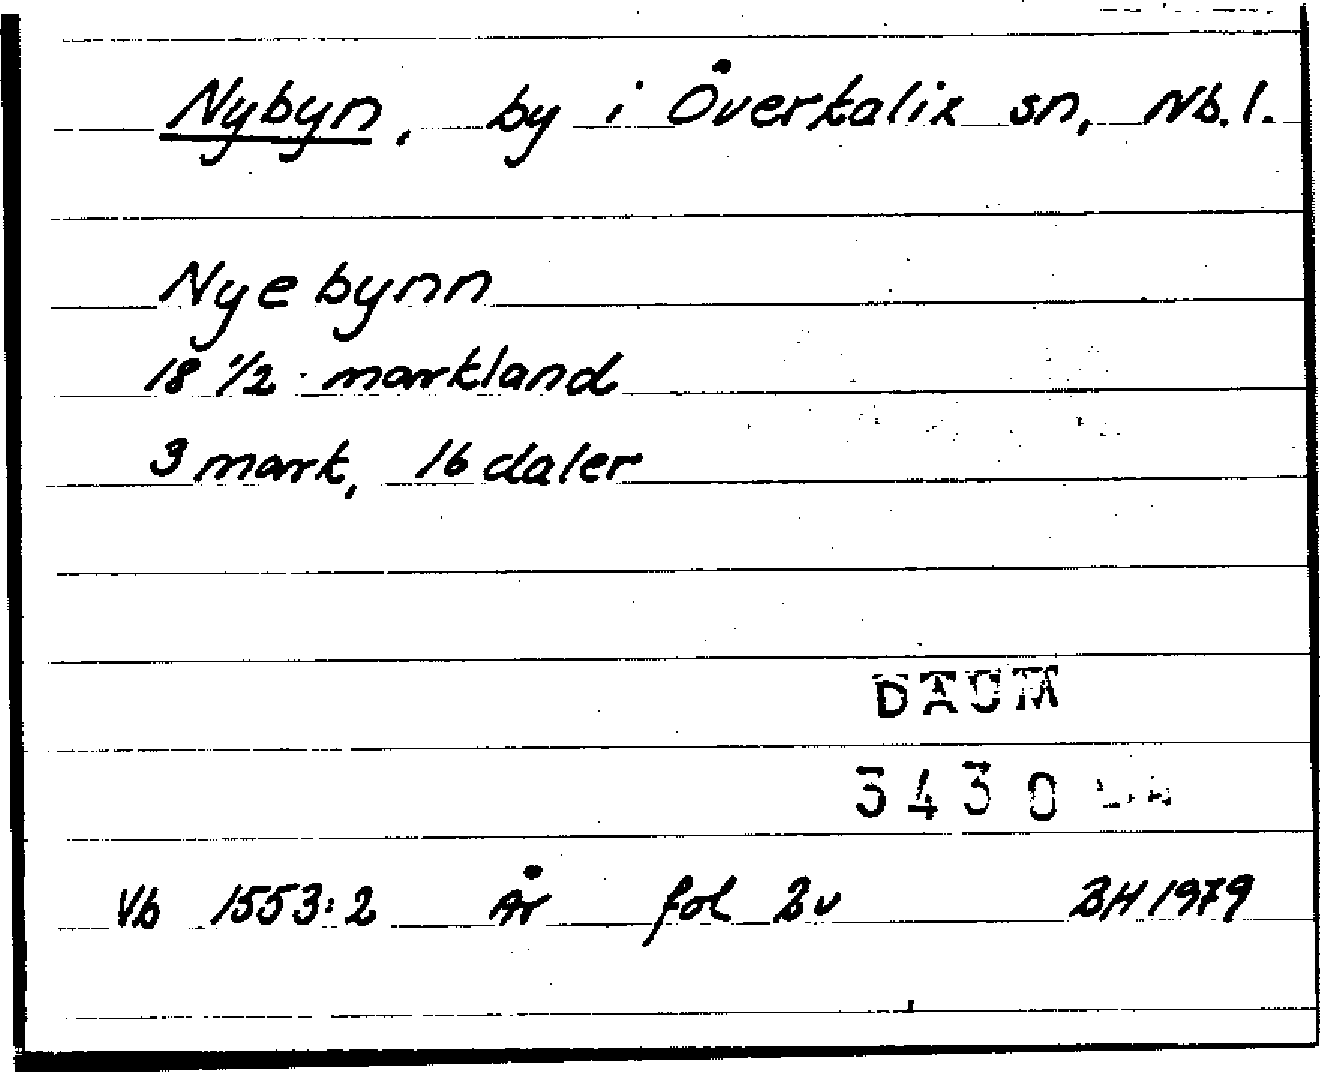 Nybyn, by i Överkalix sn, Nb.l.
Nyebynn
18 1/2 markland
3 mark, 16 daler
DAUM
3430
Vb 1553:2 År fol 2v BH 1979